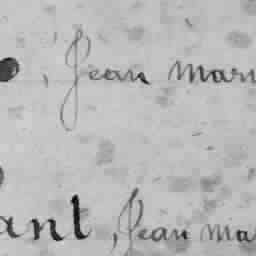 , Jean mar
ant, Jean ma